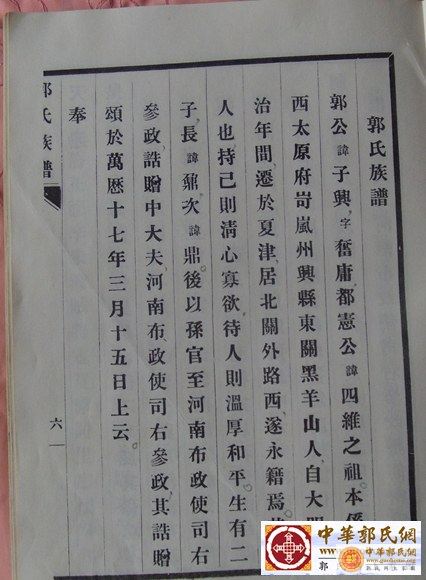 郭氏族譜
郭公諱子興字奮庸都憲公諱四維之祖本係
西太原府岢嵐州興縣東關黑羊山人自大明
治年間遷於夏津居北關外路西遂永籍焉
人也持己則清心寡欲待人則溫厚和平生有二
子長諱鼐次諱鼎後以孫官至河南布政使司右
參政誥贈中大夫河南布政使司右參政其誥贈
頌於萬曆十七年三月十五日上云
奉
郭氏族譜
六
中華郭氏網
郭